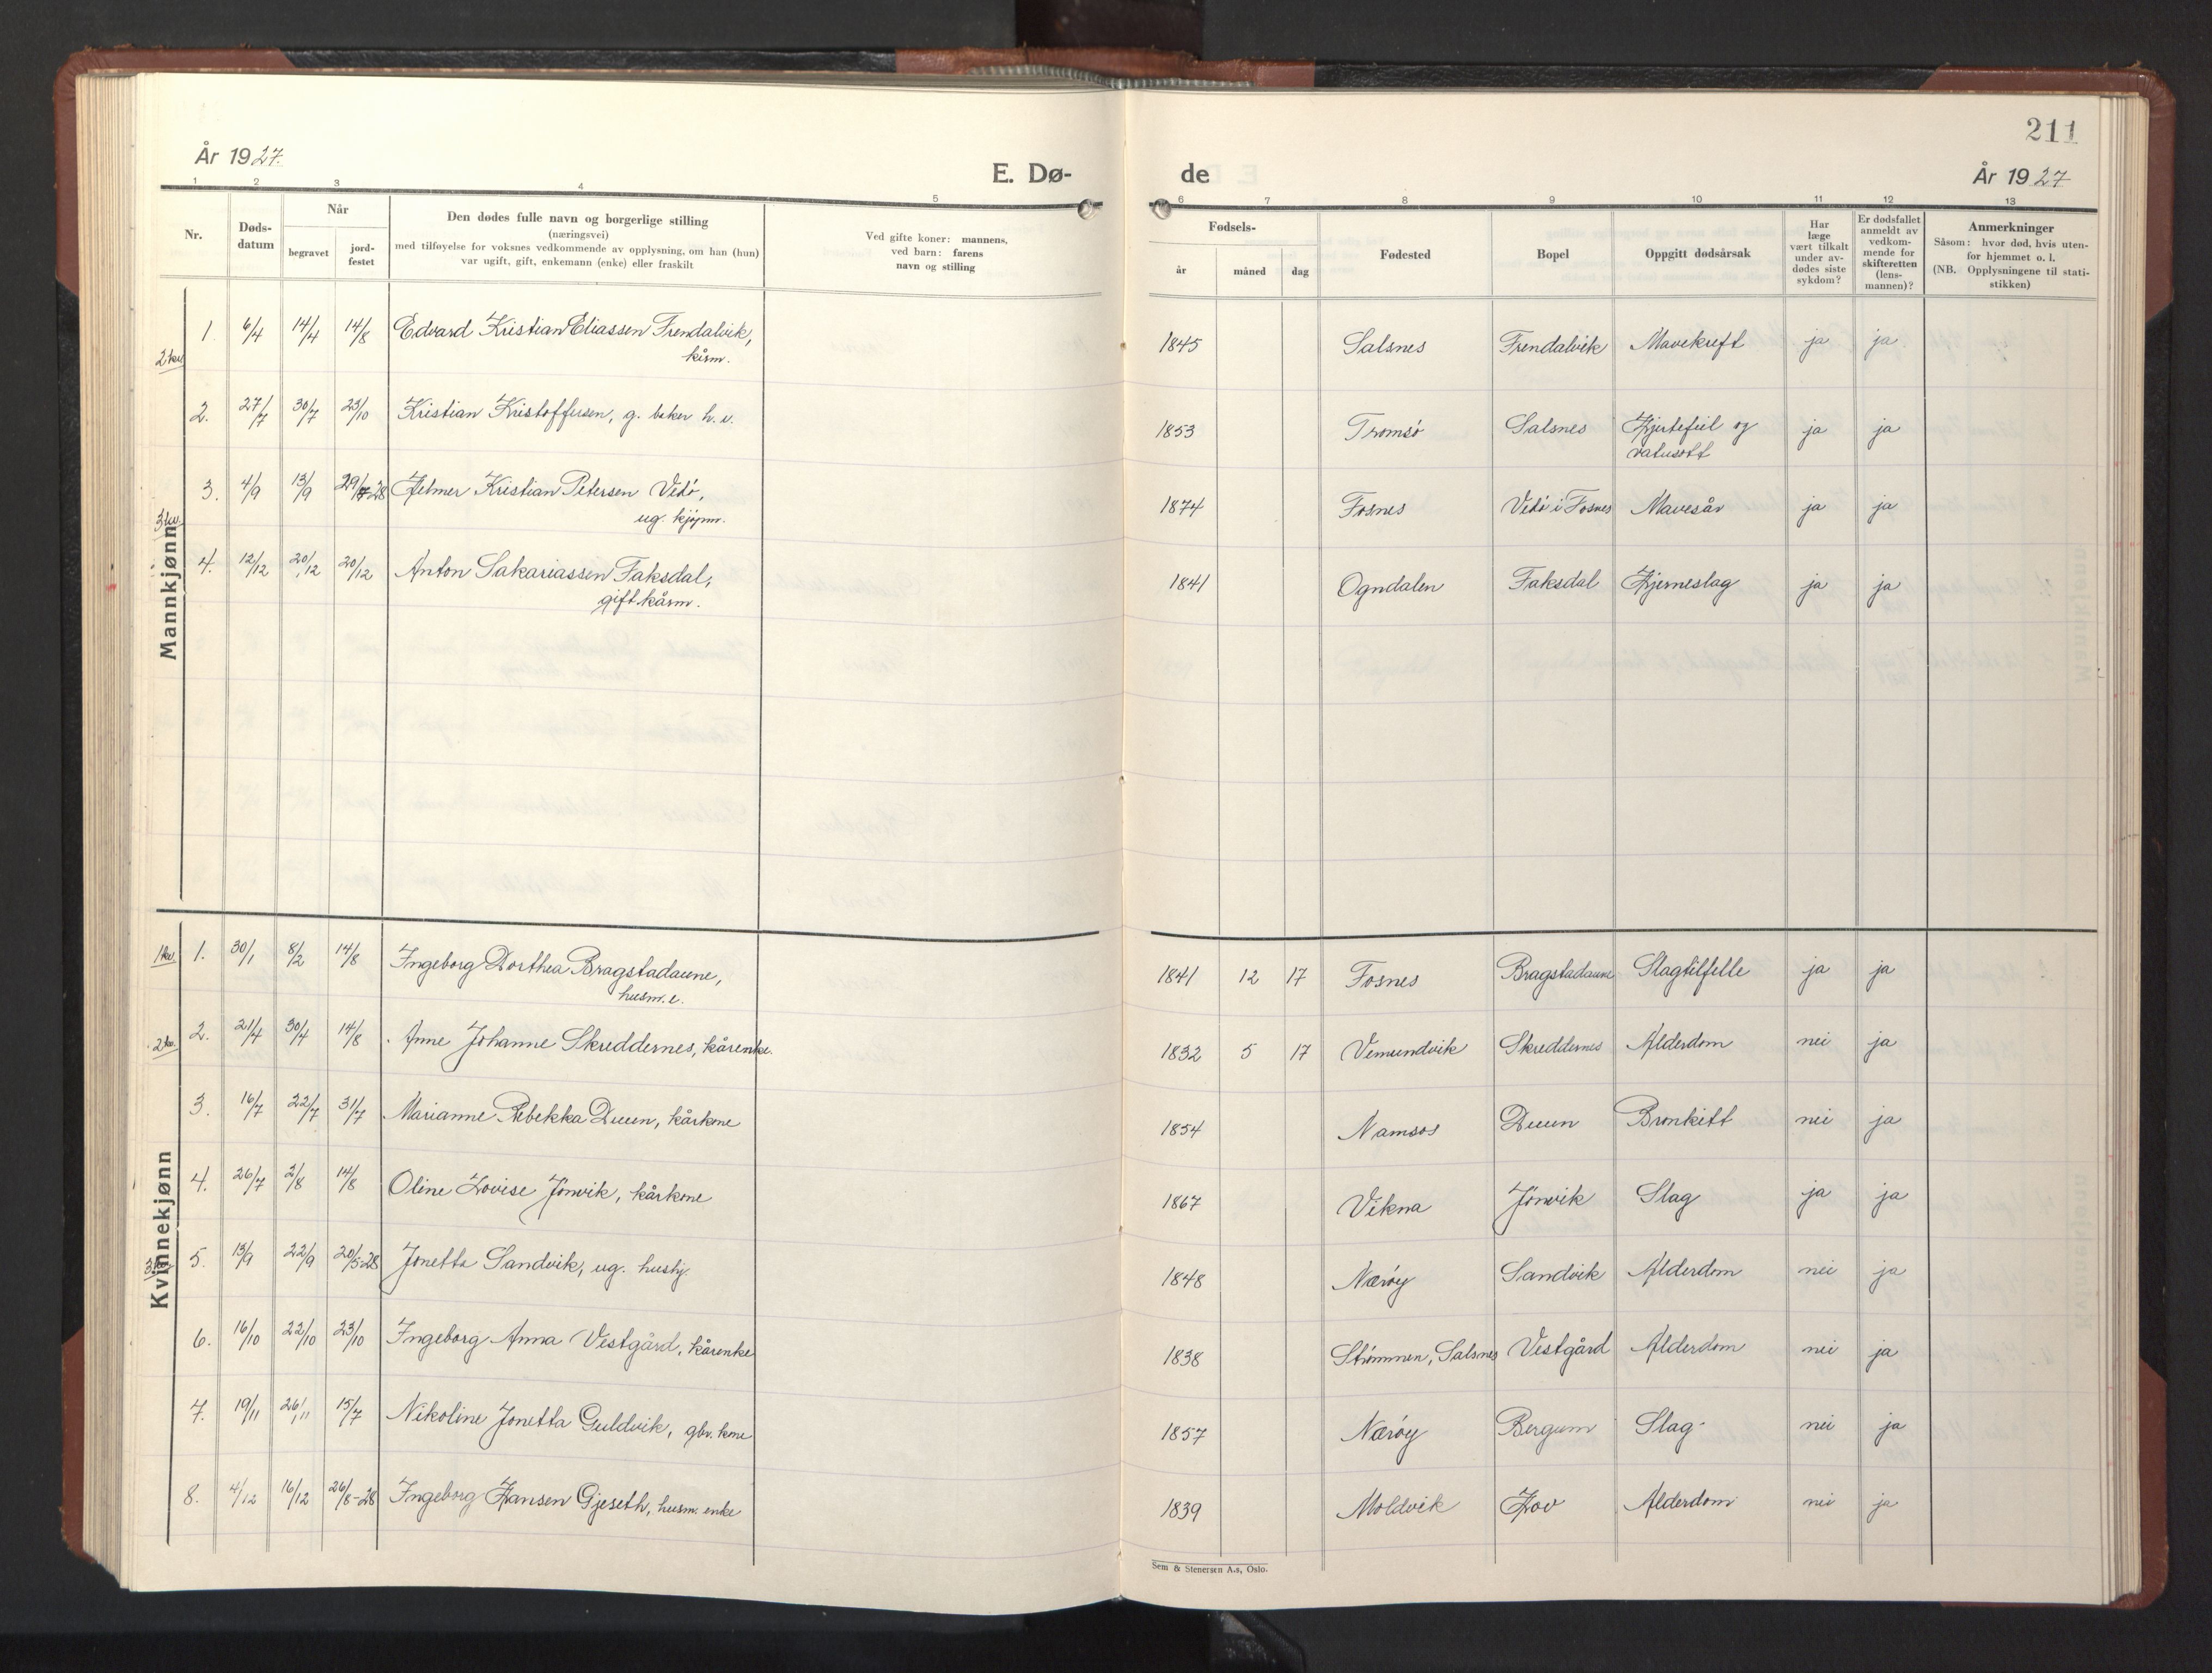 211
År 1927.
E. Dø-
de
År 1927
1 2 3 4 5
6 7 8 9 10 11 12 13
Nr.
Døds-
datum
Når
begravet
jord-
festet
Den dødes fulle navn og borgerlige stilling
(næringsvei)
med tilføyelse for voksnes vedkommende av opplysning, om han (hun)
var ugift, gift, enkemann (enke) eller fraskilt
Ved gifte koner: mannens,
ved barn: farens
navn og stilling
Fødsels-
år måned dag
Fødested
Bopel
Oppgitt dødsårsak
Har
læge
vært tilkalt
under av-
dødes siste
sykdom?
Er dødsfallet
anmeldt av
vedkom-
mende for
skifteretten
(lens-
mannen)?
Anmerkninger
Såsom: hvor død, hvis uten-
for hjemmet o. l.
(NB. Opplysningene til stati-
stikken)
Mannkjønn
2 kv.
1. 6/4 14/4 14/8 Edvard Kristian Eliassen Frendalvik,
kårm.
1845 Salsnes Frendalvik Mavekreft ja ja
2. 27/7 30/7 23/10 Kristian Kristoffersen, g. baker h. e.
1853 Tromsø Salsnes Hjertefeil og
vatersott
ja ja
3 kv.
3. 4/9 13/9 29/7-28 Helmer Kristian Petersen Vedø,
ug. kjøpm.
1874 Fosnes Vedø i Fosnes Mavesår ja ja
4. 12/12 20/12 20/12 Anton Sakariassen Faksdal,
gift kårm.
1841 Ogndalen Faksdal Hjerneslag ja ja
Kvinnekjønn
1 kv.
1. 30/1 8/2 14/8 Ingeborg Dorthea Bragstadaune,
husm. e.
1841 12 17 Fosnes Bragstadaune Slagtilfelle ja ja
2 kv.
2. 21/4 30/4 14/8 Anne Johanne Skreddernes, kårenke.
1832 5 17 Vemundvik Skreddernes Alderdom nei ja
3. 16/7 22/7 31/7 Marianne Rebekka Duun, kårkone
1854 Namsos Duun Bronkitt nei ja
4. 26/7 2/8 14/8 Oline Lovise Jønvik, kårkone
1867 Vikna Jønvik Slag ja ja
3 kv.
5. 13/9 22/9 20/5-28 Jonetta Sandvik, ug. hushj.
1848 Nærøy Sandvik Alderdom nei ja
6. 16/10 22/10 23/10 Ingeborg Anna Vestgård, kårenke
1838 Strømmen, Salsnes Vestgård Alderdom nei ja
7. 19/11 26/11 15/7 Nikoline Jonetta Guldvik, gbr. kone
1857 Nærøy Bergum Slag nei ja
8. 4/12 16/12 26/8-28 Ingeborg Hansen Gjeseth, husm. enke
1839 Moldvik Hov Alderdom nei ja
Sem & Stenersen A.s, Oslo.